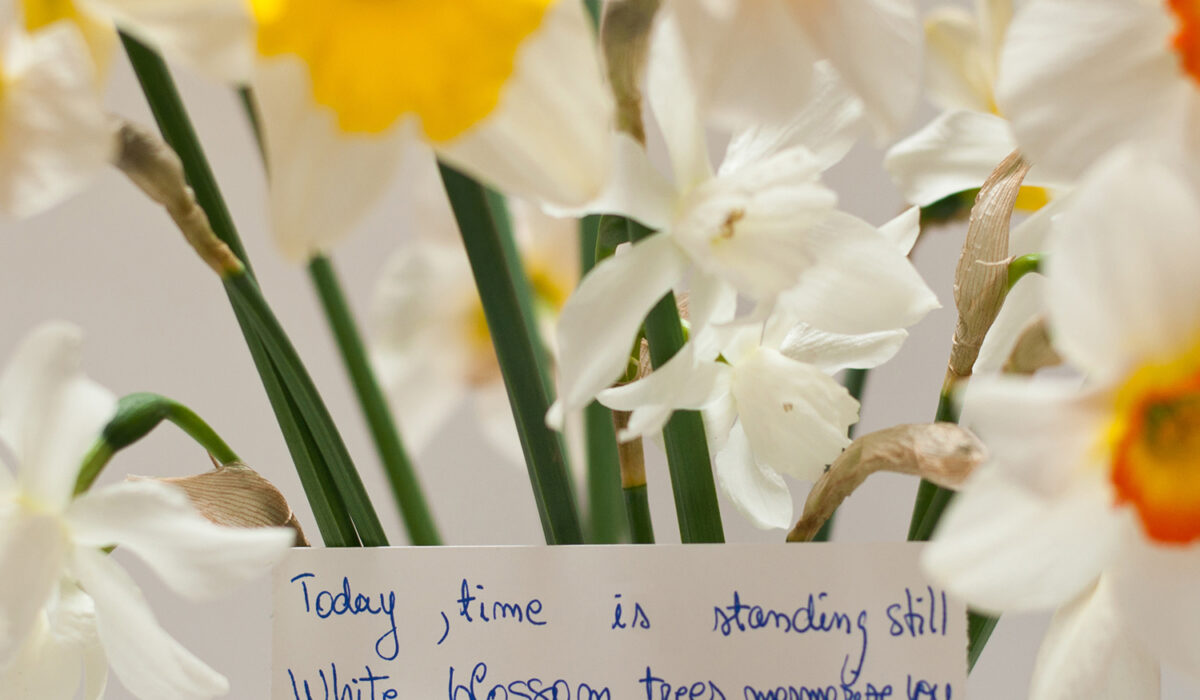 Today , time is standing still
White blossom trees